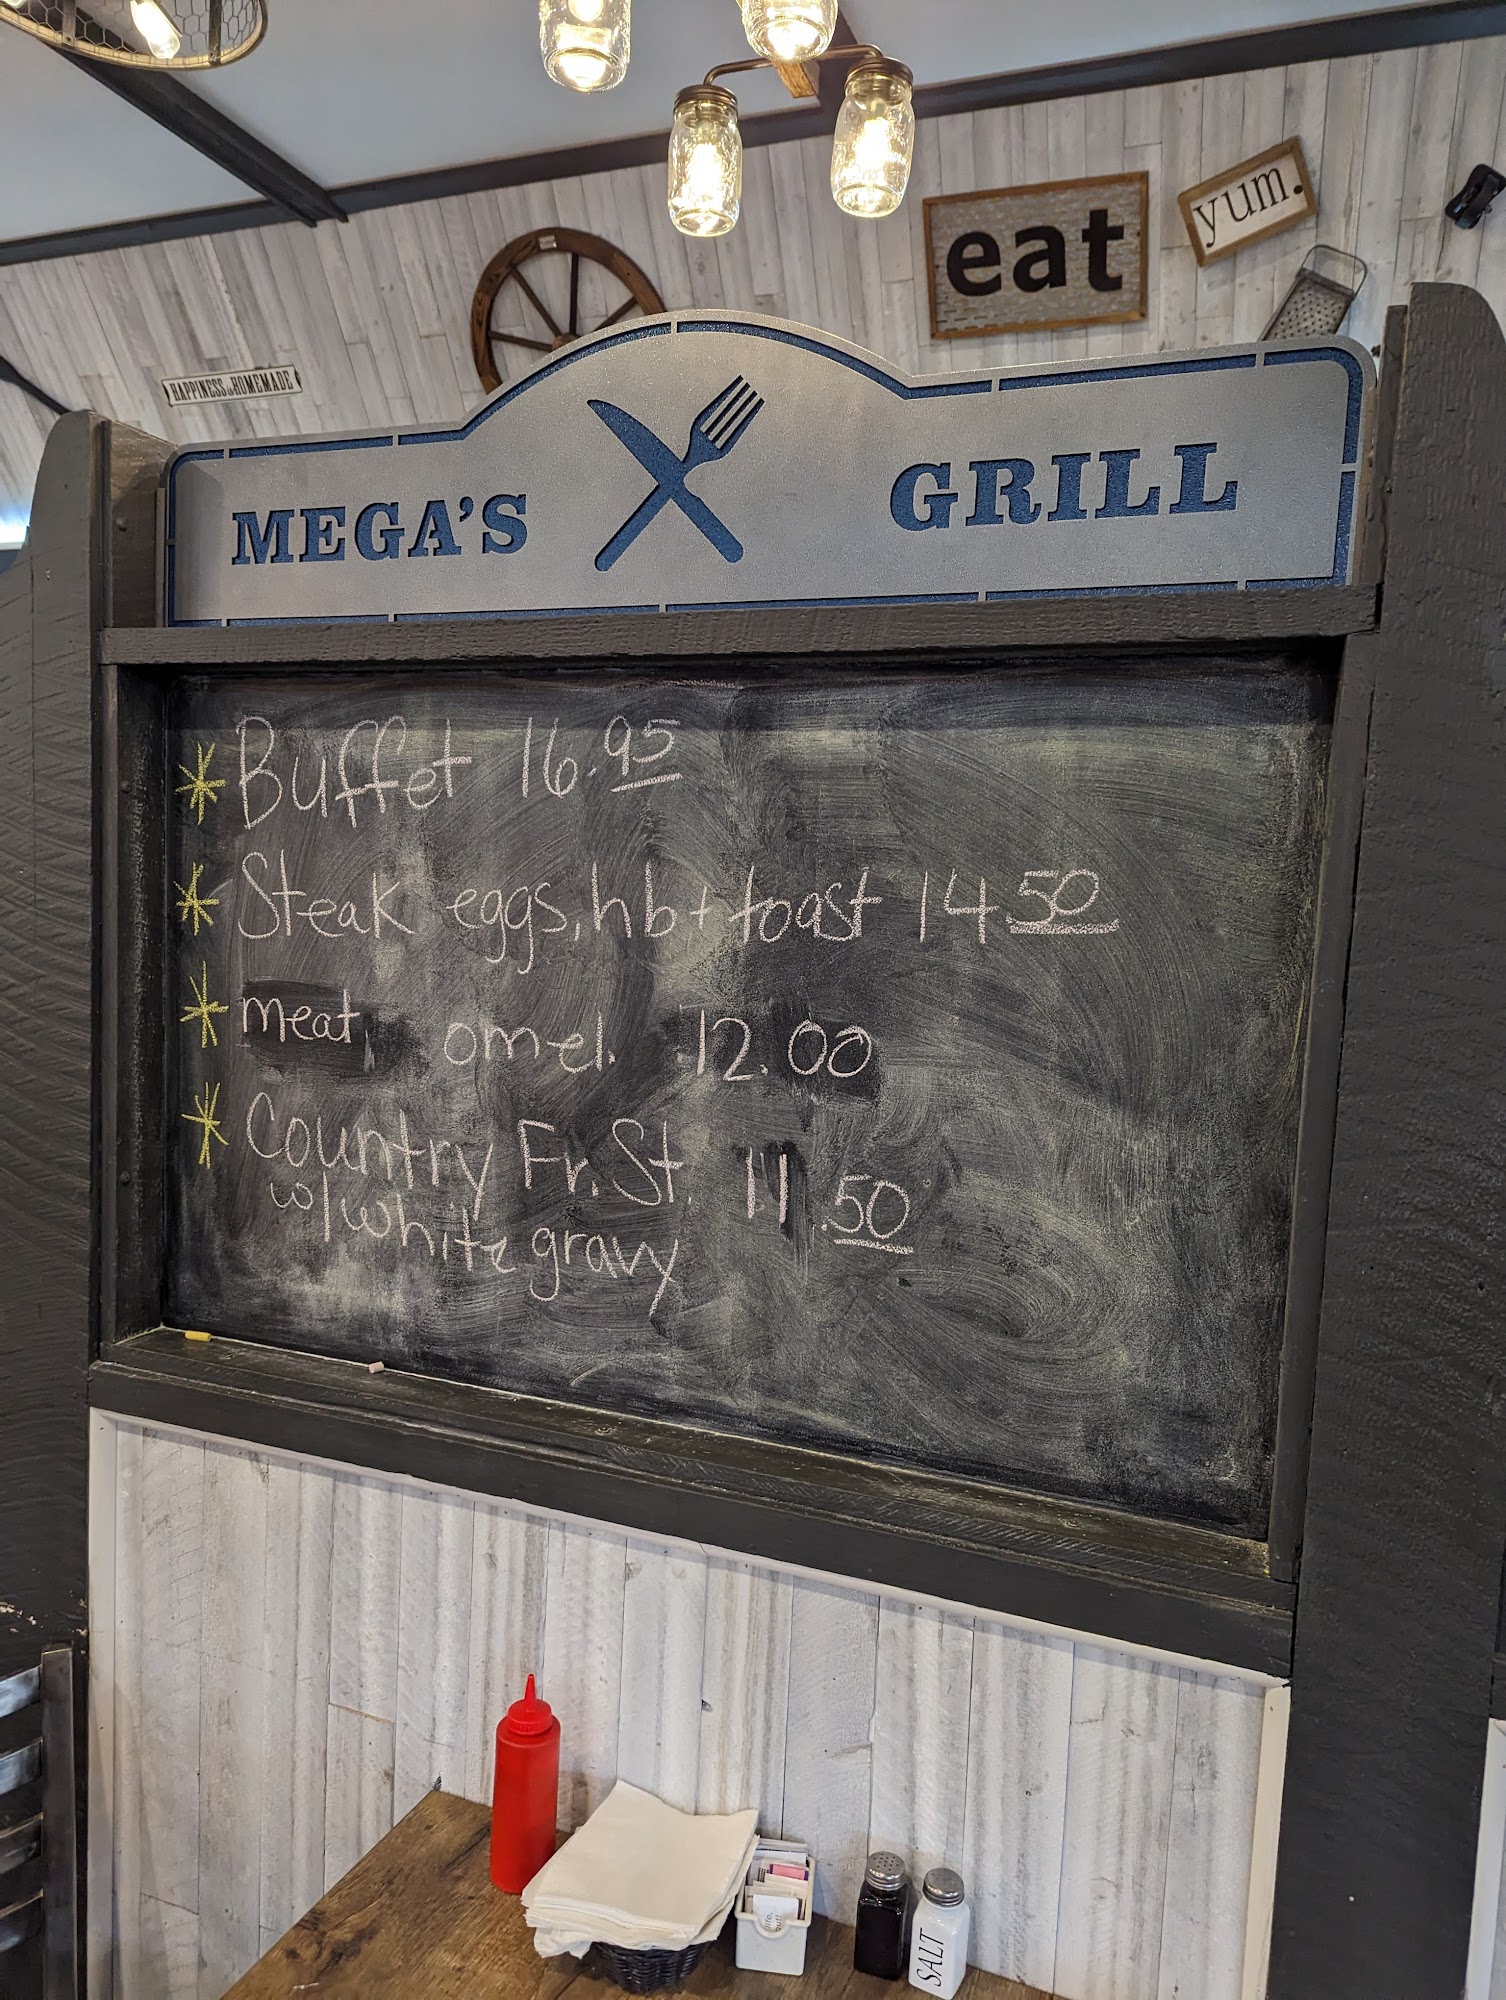 eat
yum.
HAPPINESS is HOMEMADE
MEGA'S GRILL
* Buffet 16.95
* Steak eggs, hb + toast 14 50
* meat, omel. 12.00
* Country Fr. St. 11.50
w/white gravy
SALT